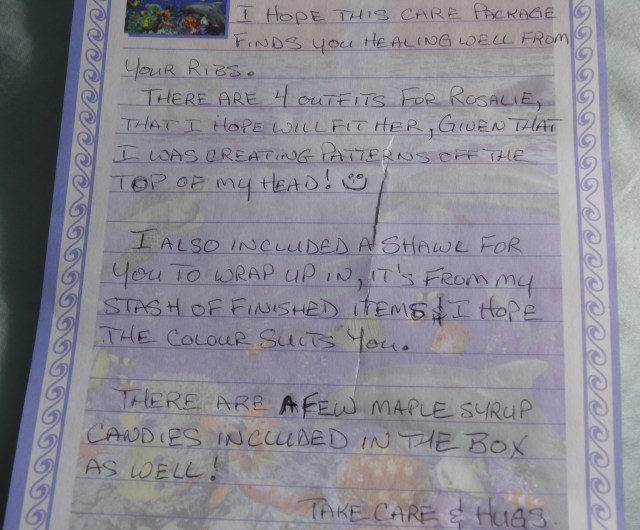 I HOPE THIS CARE PACKAGE
FINDS YOU HEALING WELL FROM
YOUR RIBS.
THERE ARE 4 OUTFITS FOR ROSALIE,
THAT I HOPE WILL FIT HER, GIVEN THAT
I WAS CREATING PATTERNS OFF THE
TOP OF MY HEAD! ☺
I ALSO INCLUDED A SHAWL FOR
YOU TO WRAP UP IN, IT'S FROM MY
STASH OF FINISHED ITEMS & I HOPE
THE COLOUR SUITS YOU.
THERE ARE A FEW MAPLE SYRUP
CANDIES INCLUDED IN THE BOX
AS WELL!
TAKE CARE & HUGS